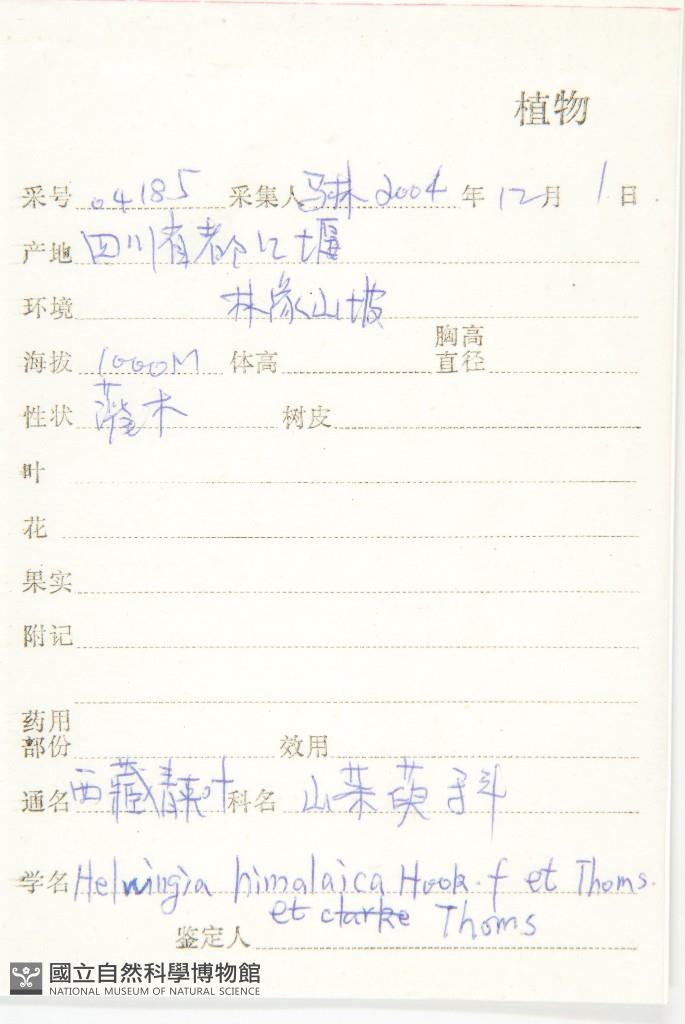 植物
采号 04185 采集人 马林 2004 年 12 月 1 日
产地 四川省都江堰
环境 林缘山坡
海拔 1000M 体高 胸高直径
性状 灌木 树皮
叶
花
果实
附记
药用部份 效用
通名 西藏青荚叶 科名 山茱萸科
学名 Helwingia himalaica Hook. f et Thoms.
et clarke Thoms
鉴定人
國立自然科學博物館
NATIONAL MUSEUM OF NATURAL SCIENCE